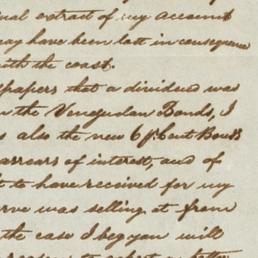 inal extract of my account
may have been lost in consequence
with the coast.
papers that a dividend was
n the Venezuelan Bonds, I
s also the new 6 p Cent Bonds
arrears of interest, and of
t to have received for my
erve was selling at from
the case I beg you will